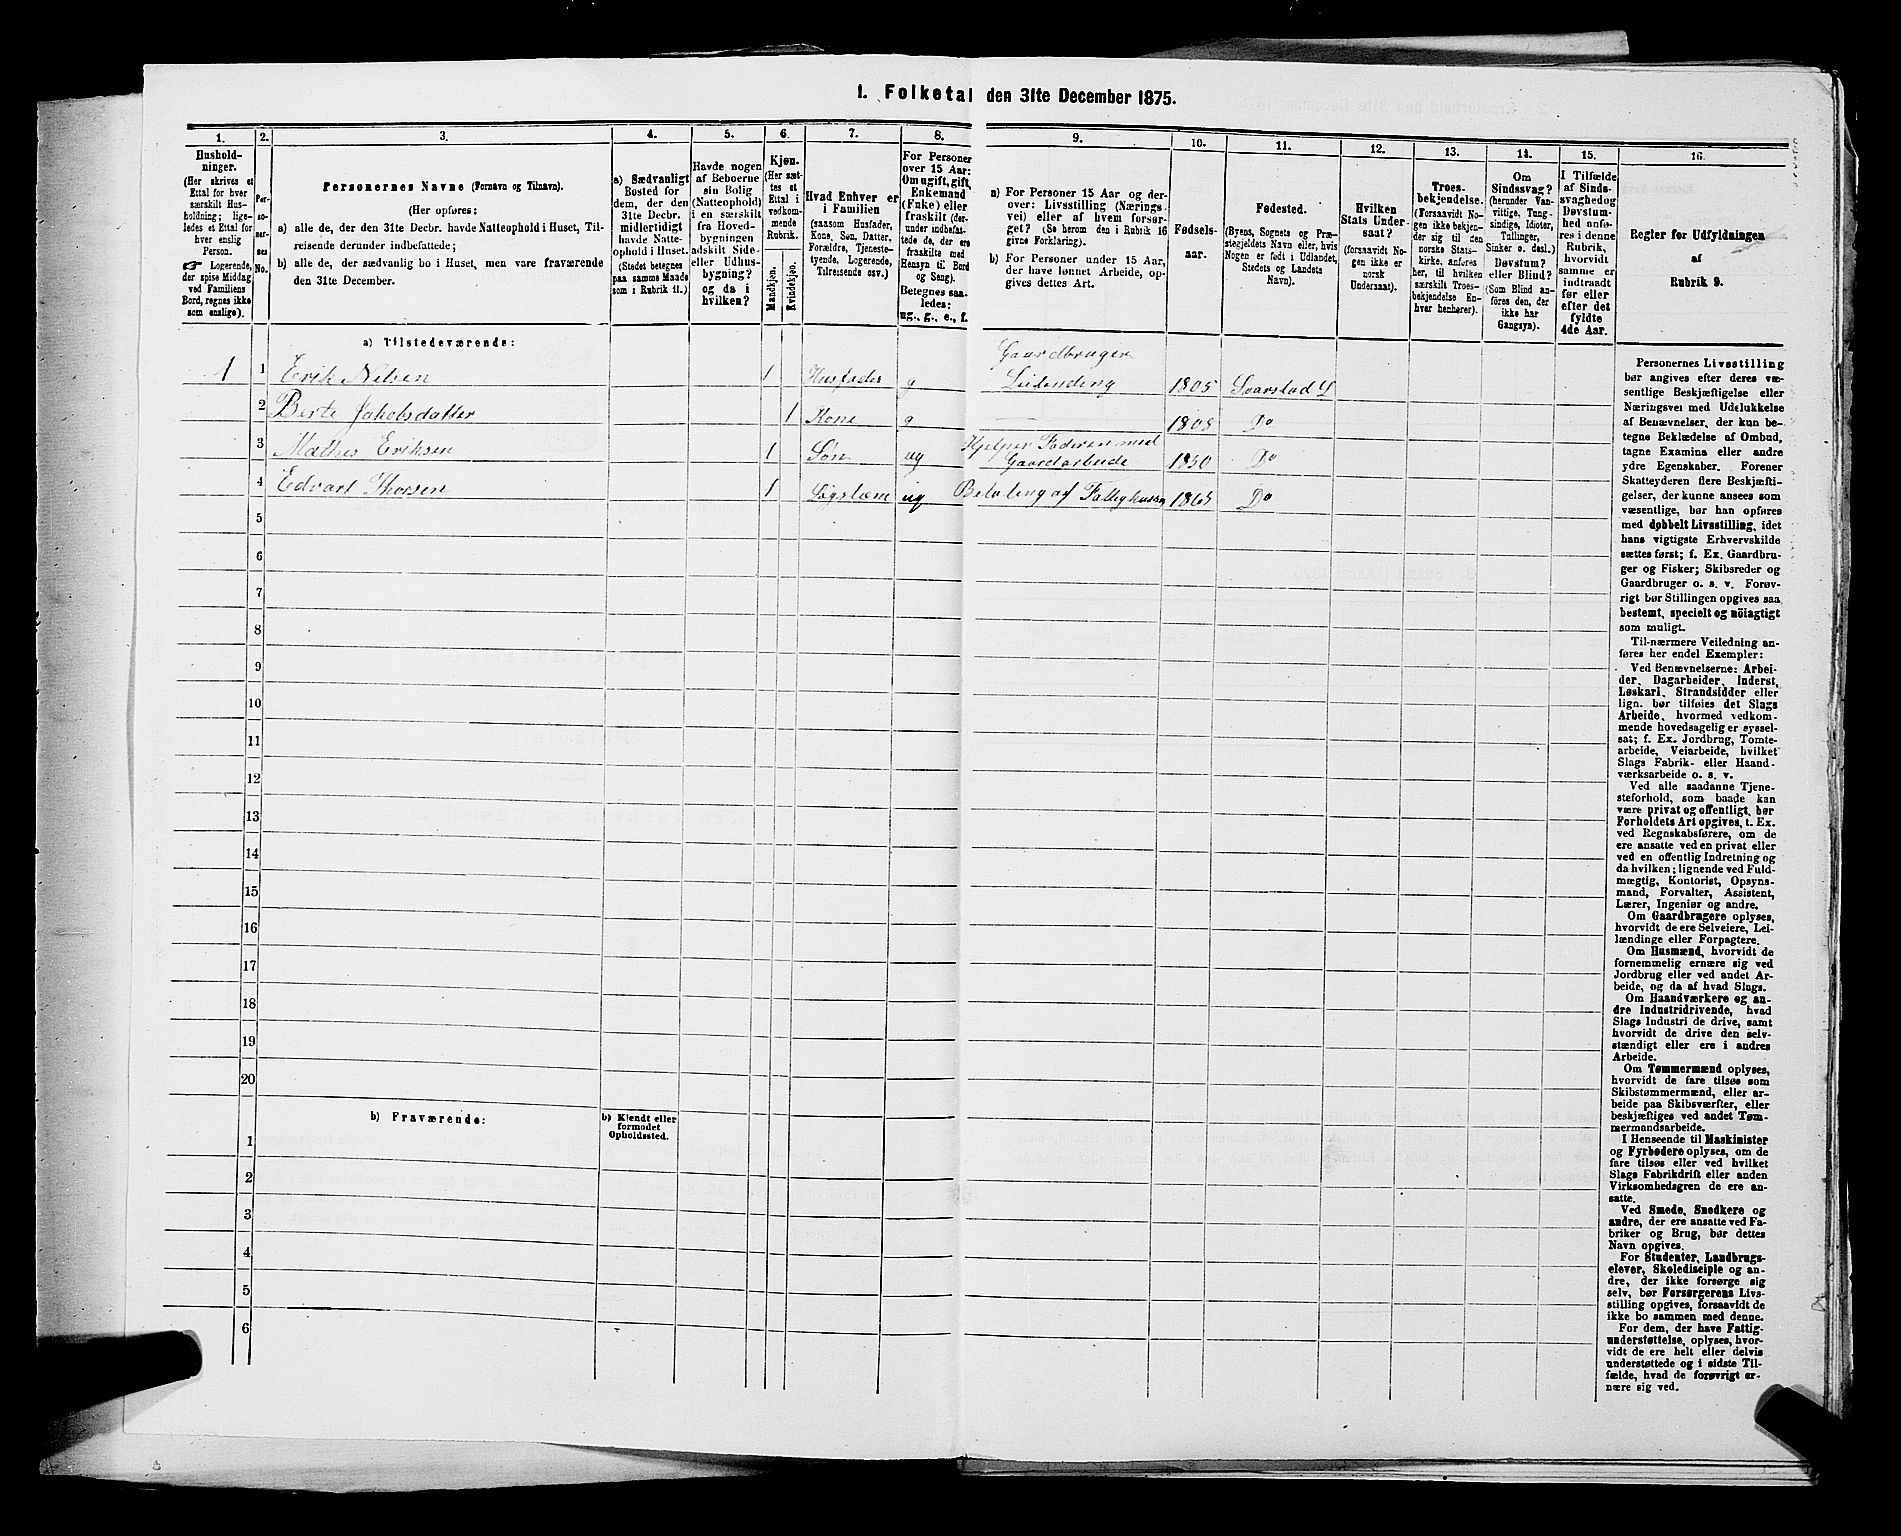 1. Folketal den 31te December 1875.
1. 2. 3. 4. 5. 6. 7. 8. 9. 10. 11. 12. 13. 14. 15. 16.
Hushold-
ninger.
(Her skrives et
Ettal for hver
særskilt Hus-
holdning; lige-
ledes et Ettal for
hver enslig
Person.
☞ Logerende,
der spise Middag
ved Familiens
Bord, regnes ikke
som enslige).
Per-
so-
ner-
nes
No.
Personernes Navne (Fornavn og Tilnavn).
(Her opføres:
a) alle de, der den 31te Decbr. havde Natteophold i Huset, Til-
reisende derunder indbefattede;
b) alle de, der sædvanlig bo i Huset, men vare fraværende
den 31te December.
a) Sædvanligt
Bosted for
dem, der den
31te Decbr.
midlertidigt
havde Natte-
ophold i Huset.
(Stedet betegnes
paa samme Maade
som i Rubrik 11.)
Havde nogen
af Beboerne
sin Bolig
(Natteophold)
i en særskilt
fra Hoved-
bygningen
adskilt Side-
eller Udhus-
bygning?
og da i
hvilken?
Kjøn.
(Her sæt-
tes et
Ettal i
vedkom-
mende
Rubrik.
Mandkjøn.
Kvindekjøn.
Hvad Enhver er
i Familien
(saasom Husfader,
Kone, Søn, Datter,
Forældre, Tjeneste-
tyende, Logerende,
Tilreisende osv.)
For Personer
over 15 Aar:
Om ugift, gift,
Enkemand
(Enke) eller
fraskilt (der-
under indbefat-
tede de, der ere
fraskilte med
Hensyn til Bord
og Seng).
Betegnes saa-
ledes:
ug., g., e., f.
a) For Personer 15 Aar og der-
over: Livsstilling (Nærings-
vei) eller af hvem forsør-
get? (Se herom den i Rubrik 16
givne Forklaring).
b) For Personer under 15 Aar,
der have lønnet Arbeide, op-
gives dettes Art.
Fødsels-
aar.
Fødested.
(Byens, Sognets og Præ-
stegjeldets Navn eller, hvis
Nogen er født i Udlandet,
Stedets og Landets
Navn).
Hvilken
Stats Under-
saat?
(forsaavidt No-
gen ikke er
norsk
Undersaat).
Troes-
bekjendelse.
(Forsaavidt No-
gen ikke bekjen-
der sig til den
norske Stats-
kirke, anføres
her, til hvilken
særskilt Troes-
bekjendelse En-
hver henhører).
Om
Sindssvag?
(herunder Van-
vittige, Tung-
sindige, Idioter,
Tullinger,
Sinker o. desl.)
Døvstum?
eller Blind?
(Som Blind an-
føres den, der
ikke har
Gangsyn).
I Tilfælde
af Sinds-
svaghed og
Døvstum-
hed anfø-
res i denne
Rubrik,
hvorvidt
samme er
indtraadt
før eller
efter det
fyldte
4de Aar.
Regler for Udfyldningen
af
Rubrik 9.
a) Tilstedeværende:
1 1 Erik Nilsen 1 Husfader g Gaardbruger
Leilending 1805 Svarstad S
2 Berte Jakobsdatter 1 Kone g 1808 Do
3 Mathis Eriksen 1 Søn ug Hjelper Faderen med
Gaardarbeide 1850 Do
4 Edvart Thorsen 1 Lægslem ug Betaling af Do
5
6
7
8
9
10
11
12
13
14
15
16
17
18
19
20
b) Fraværende:
b) Kjendt eller
formodet
Opholdssted.
1
2
3
4
5
6
Personernes Livsstilling
bør angives efter deres væ-
sentlige Beskjæftigelse eller
Næringsvei med Udelukkelse
af Benævnelser, der kun be-
tegne Beklædelse af Ombud,
tagne Examina eller andre
ydre Egenskaber. Forener
Skatteyderen flere Beskjæfti-
gelser, der kunne ansees som
væsentlige, bør han opføres
med dobbelt Livsstilling, idet
hans vigtigste Erhvervskilde
sættes først; f. Ex. Gaardbru-
ger og Fisker; Skibsreder og
Gaardbruger o. s. v. Forøv-
rigt bør Stillingen opgives saa
bestemt, specielt og nöiagtigt
som muligt.
Til nærmere Veiledning an-
føres her endel Exempler:
Ved Benævnelserne: Arbei-
der, Dagarbeider, Inderst,
Løskarl, Strandsidder eller
lign. bør tilføies det Slags
Arbeide, hvormed vedkom-
mende hovedsagelig er syssel-
sat; f. Ex. Jordbrug, Tomte-
arbeide, Veiarbeide, hvilket
Slags Fabrik- eller Haand-
værksarbeide o. s. v.
Ved alle saadanne Tjene-
steforhold, som baade kan
være privat og offentligt, bør
Forholdets Art opgives, t. Ex.
ved Regnskabsførere, om de
ere ansatte ved en privat eller
ved en offentlig Indretning og
da hvilken; lignende ved Fuld-
mægtig, Kontorist, Opsyns-
mand, Forvalter, Assistent,
Lærer, Ingeniør og andre.
Om Gaardbrugere oplyses,
hvorvidt de ere Selveiere, Lei-
lændinge eller Forpagtere.
Om Husmænd, hvorvidt de
fornemmelig ernære sig ved
Jordbrug eller ved andet Ar-
beide, og da af hvad Slags.
Om Haandværkere og an-
dre Industridrivende, hvad
Slags Industri de drive, samt
hvorvidt de drive den selv-
stændigt eller ere i andres
Arbeide.
Om Tømmermænd oplyses,
hvorvidt de fare tilsøs som
Skibstømmermænd, eller ar-
beide paa Skibsværfter, eller
beskjæftiges ved andet Tøm-
mermandsarbeide.
I Henseende til Maskinister
og Fyrbødere oplyses, om de
fare tilsøs eller ved hvilket
Slags Fabrikdrift eller anden
Virksomhedsgren de ere an-
satte.
Ved Smede, Snedkere og
andre, der ere ansatte ved Fa-
briker og Brug, bør dettes
Navn opgives.
For Studenter, Landbrugs-
elever, Skoledisciple og an-
dre, der ikke forsørge sig
selv, bør Forsørgerens Livs-
stilling opgives, forsaavidt de
ikke bo sammen med denne.
For dem, der have Fattig-
understøttelse, oplyses, hvor-
vidt de ere helt eller delvis
understøttede og i sidste Til-
fælde, hvad de forøvrigt er-
nære sig ved.